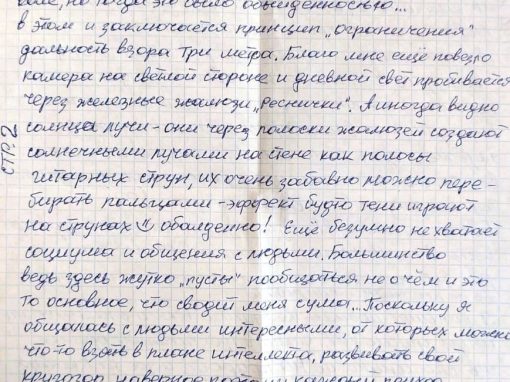 воле, но тогда это было обыденностью...
в этом и заключается принцип „ограничения"
дальность взора три метра. Благо мне ещё повезло
камера на светлой стороне и дневной свет пробивается
через железные жалюзи „Реснички". А иногда видно
солнца лучи - они через полоски жалюзей создают
солнечными лучами на стене как полосы
гитарных струн, их очень забавно можно пере-
бирать пальцами - эффект будто тени играют
на струнах обалденно! Ещё безумно не хватает
социума и общения с людьми. Большинство
ведь здесь жутко „пусты" пообщаться не о чём и это
то основное, что сводит меня с ума... Поскольку я
общалась с людьми интересными, от которых можно
что-то взять в плане интеллекта, развивать свой
кругозор, наверное поэтому каждый
СТР. 2